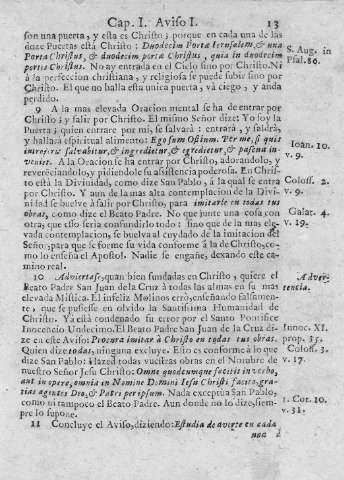 Cap. I. Aviso I. 13
son una puerta, y esta es Christo; porque en cada una de las
doze Puertas está Christo: Duodecim Portæ Ierusalem, & una
Porta Christus, & duodecim portæ Christus, quia in duodecim
portas Christus. No ay entrada en el Cielo sino por Christo. Ni
à la perfeccion christiana, y religiosa se puede subir sino por
Christo. El que no halla esta unica puerta, vâ ciego, y anda
perdido.
S. Aug. in
Psal. 86.
9 A la mas elevada Oracion mental se ha de entrar por
Christo; y salir por Christo. El mismo Señor dize: Yo soy la
Puerta; quien entrare por mi, se salvará: entrará, y saldrá,
y hallará espiritual alimento: Ego sum Ostium. Per me, si quis
introierit salvabitur, & ingredietur, & egredietur, & pascua in-
veniet. A la Oracion se ha entrar por Christo, adorandolo, y
reverenciandolo, y pidiendole su asistencia poderosa. En Chris-
to está la Divinidad, como dize San Pablo, á la qual se entra
por Christo. Y aun de la mas alta contemplacion de la Divini-
dad se buelve à salir por Christo, para imitarle en todas tus
obras, como dize el Beato Padre. No que junte una cosa con
otra, que esso seria confundirlo todo: sino que de la mas ele-
vada contemplacion, se buelva al cuydado de la imitacion del
Señor, para que se forme su vida conforme á la de Christo, co-
mo lo enseña el Apostol. Nadie se engañe, dexando este ca-
mino real.
Ioan. 10.
v. 9.
Coloss. 2.
v. 9.
Galat. 4.
v. 19.
10 Adviertase, quan bien fundadas en Christo, quiere el
Beato Padre San Juan de la Cruz à todas las almas en su mas
elevada Mistica. El infeliz Molinos erró, enseñando falsamen-
te, que se pusiesse en olvido la Santissima Humanidad de
Christo. Ya está condenado su error por el Santo Pontifice
Inocencio Undecimo. El Beato Padre San Juan de la Cruz di-
ze en este Aviso: Procura imitar à Christo en todas tus obras.
Quien dize todas, ninguna excluye. Esto es conforme à lo que
dize San Pablo: Hazed todas vuestras obras en el Nombre de
nuestro Señor Jesu Christo: Omne quodcumque facitis in verbo,
aut in opere, omnia in Nomine Domini Iesu Christi facite, gra-
tias agentes Deo, & Patri per ipsum. Nada exceptúa San Pablo,
como ni tampoco el Beato Padre. Aun donde no lo dize, siem-
pre lo supone.
Adver-
tencia.
Innoc. XI.
prop. 35.
Coloss. 3.
v. 17.
1. Cor. 10.
v. 31.
11 Concluye el Aviso, diziendo: Estudia de averte en cada
una d